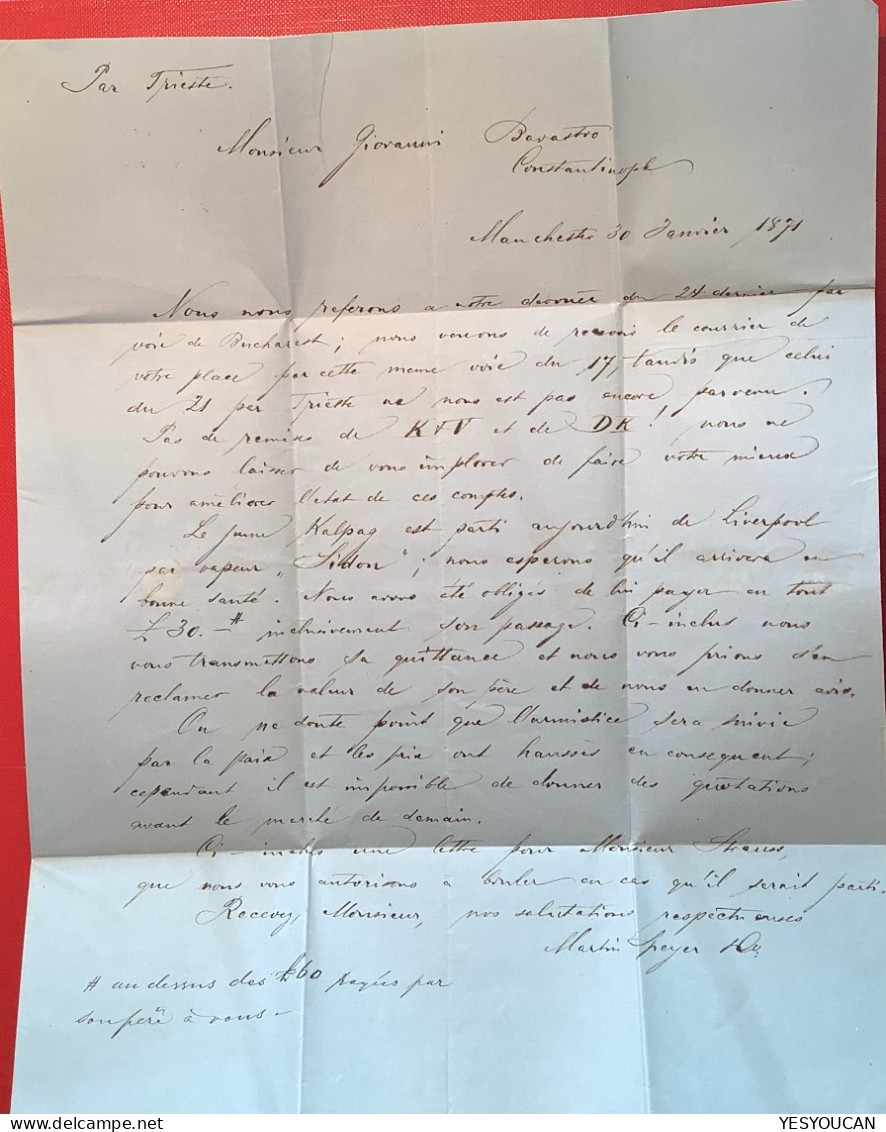 Par Trieste.
Monsieur Giovanni Bavastro
Constantinople
Manchester 30 Janvier 1871
Nous nous referons a notre dévouée du 24 dernier par
voie de Bucharest; nous venons de recevoir le courrier de
votre place par cette meme voie du 17, tandis que celui
du 21 par Trieste ne nous est pas encore parvenu.
Pas de remises de K&V et de DK! nous ne
pouvons laisser de vous implorer de faire votre mieux
pour améliorer l'etat de ces comptes.
Le jeune Kalpag est parti aujourd'hui de Liverpool
par vapeur „Sidon"; nous esperons qu'il arrivera en
bonne santé. Nous avons été obligés de lui payer en tout
£30.-# inclusivement son passage. Ci-inclus nous
vous transmettons sa quittance et nous vous prions d'en
reclamer la valeur de son père et de nous en donner avis.
On ne doute point que l'armistice sera suivie
par la paix et les prix ont haussés en consequent;
cependant il est impossible de donner des quotations
avant le marché de demain.
Ci-inclus une lettre pour Monsieur Strauss,
que nous vous autorisons à bruler en cas qu'il serait parti.
Recevez, Monsieur, nos salutations respectueuses
Martin Speyer & Co.
# au dessus des £60 payées par
son père à vous-
YESYOUCAN